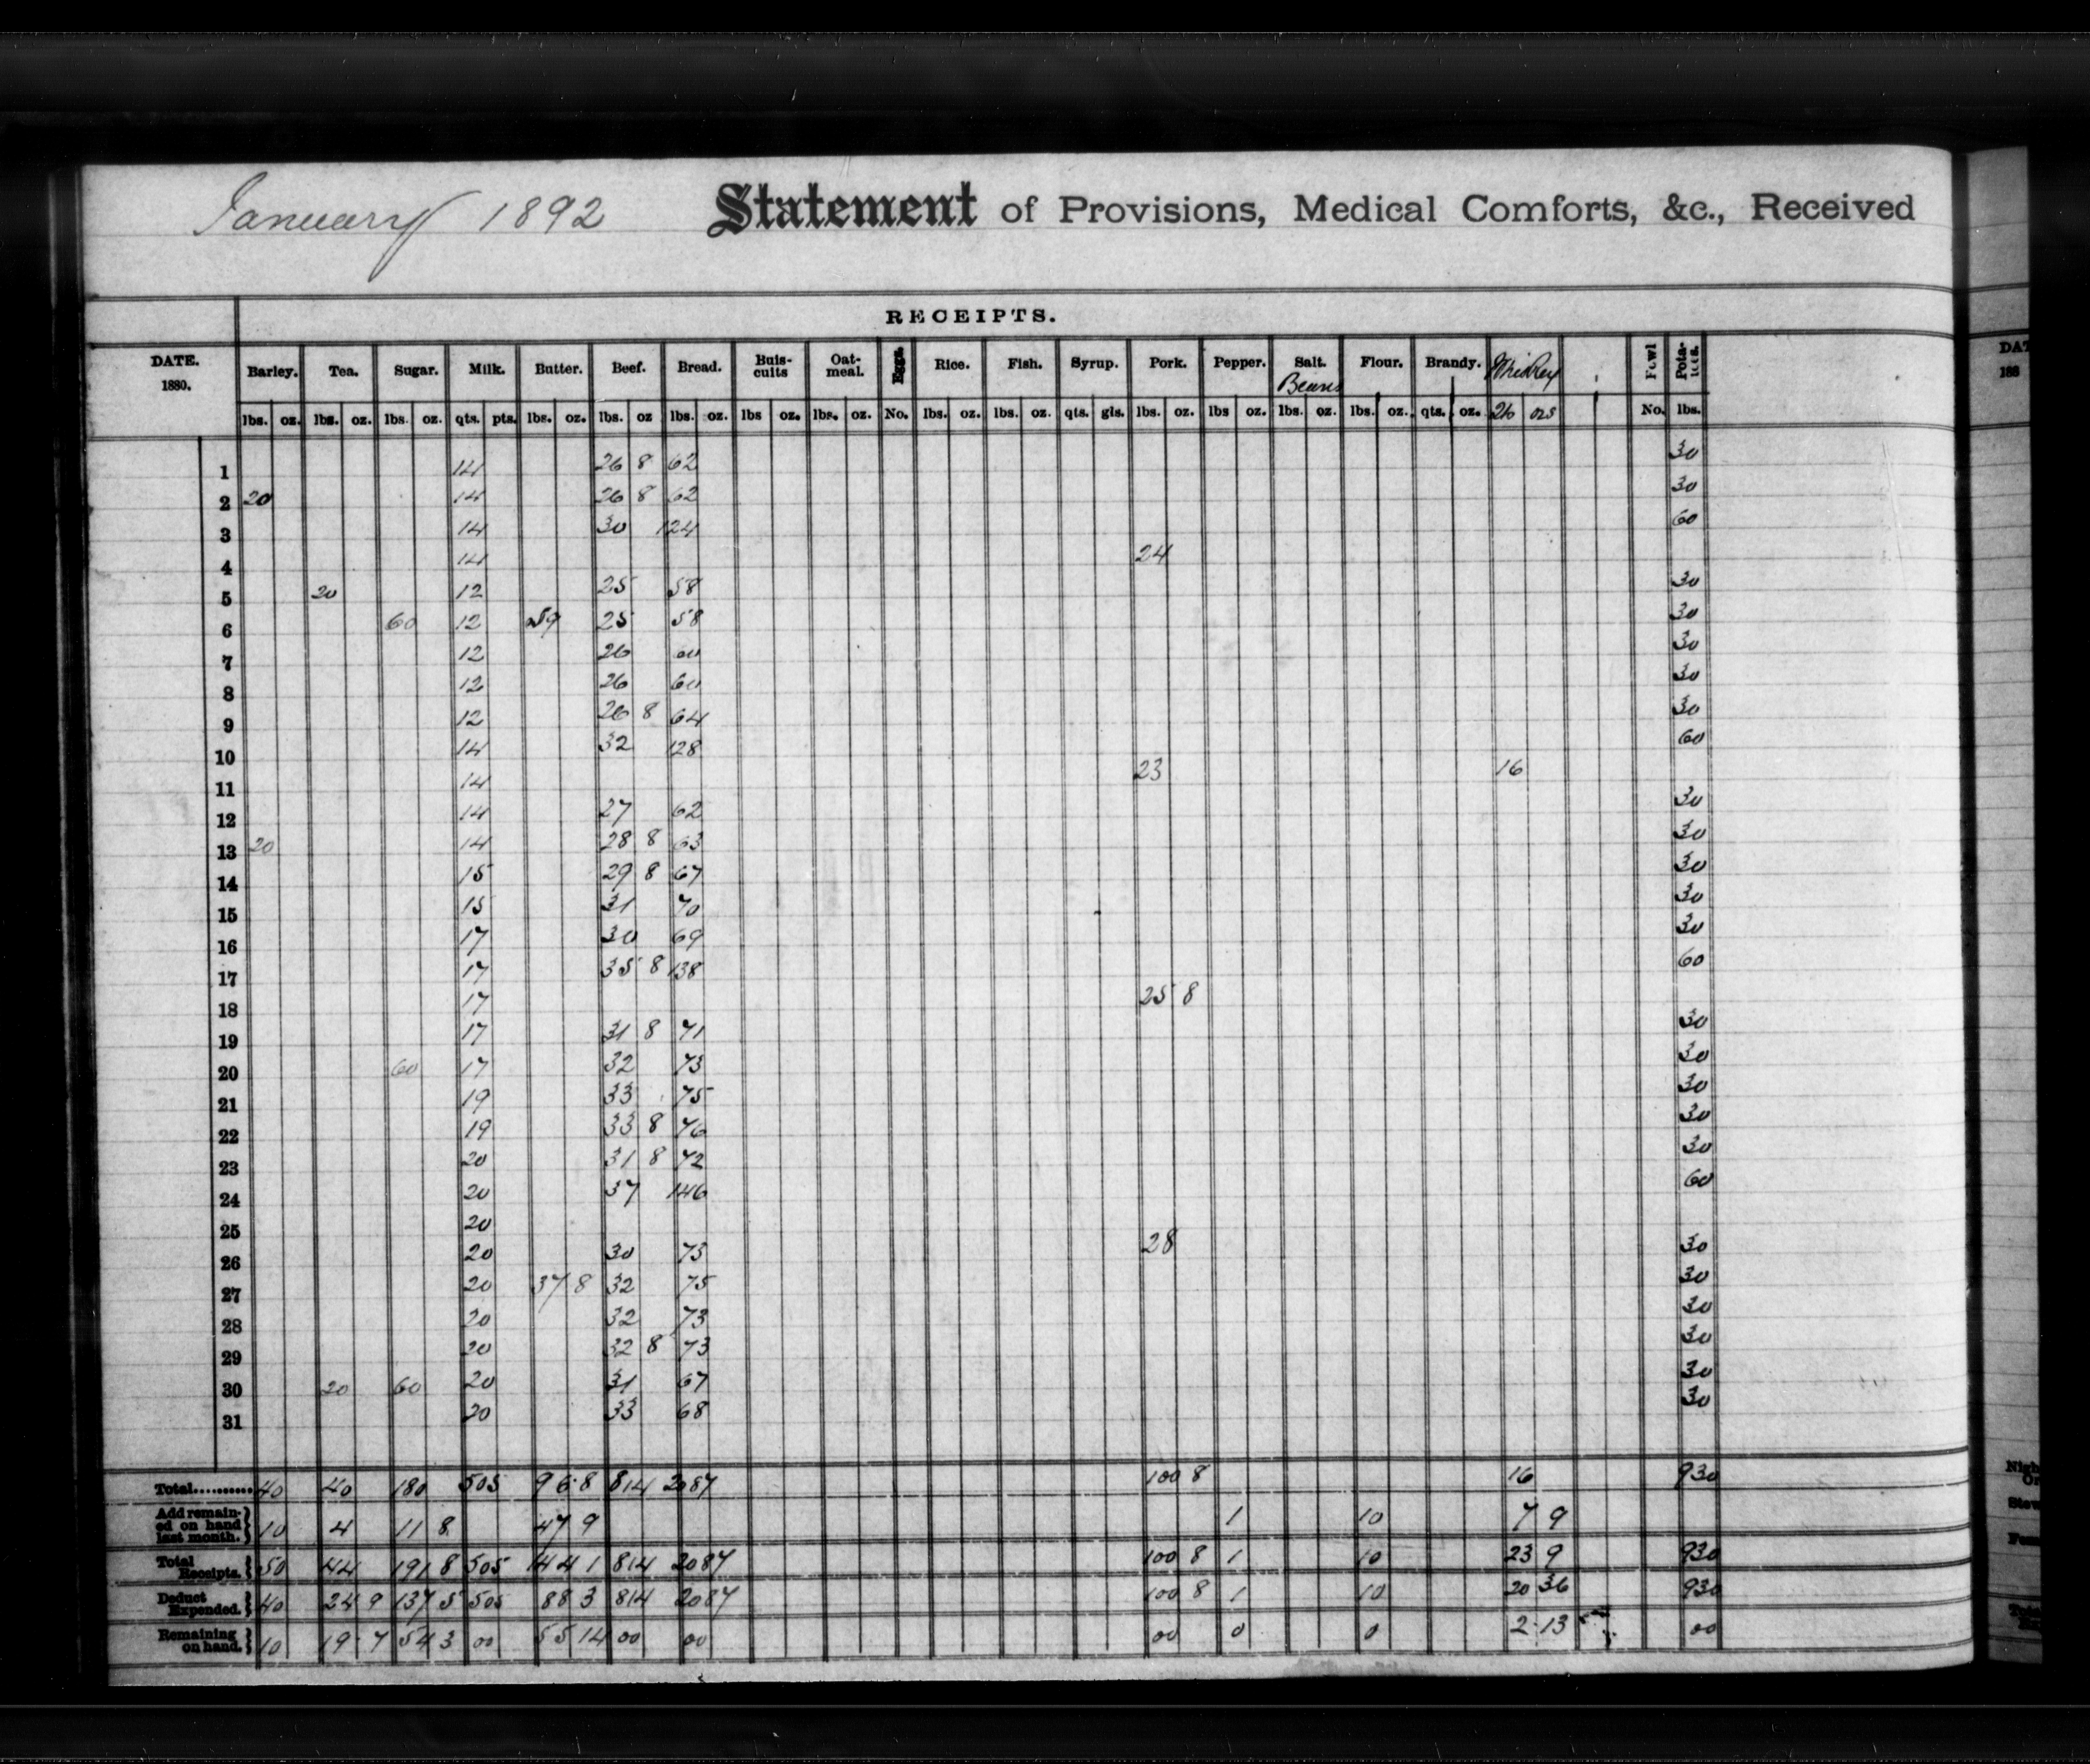 January 1892 Statement of Provisions, Medical Comforts, &c., Received
RECEIPTS.
DATE. 1880. Barley. Tea. Sugar. Milk. Butter. Beef. Bread. Buiscuits Oatmeal. Eggs. Rice. Fish. Syrup. Pork. Pepper. Salt. Beans Flour. Brandy. Whiskey Fowl Potatoes. DAT
188
lbs. oz. lbs. oz. lbs. oz. qts. pts. lbs. oz. lbs. oz lbs. oz. lbs oz. lbs. oz. No. lbs. oz. lbs. oz. qts. gls. lbs. oz. lbs oz. lbs. oz. lbs. oz. qts. oz. ozs No. lbs.
1 14 26 8 62 30
2 20 14 26 8 62 30
3 14 30 124 60
4 14 24
5 20 12 25 58 30
6 60 12 59 25 58 30
7 12 26 60 30
8 12 26 60 30
9 12 26 8 64 30
10 14 32 128 60
11 14 23 16
12 14 27 62 30
13 20 14 28 8 63 30
14 15 29 8 67 30
15 15 31 70 30
16 17 30 69 30
17 17 35 8 138 60
18 17 25 8
19 17 31 8 71 30
20 60 17 32 73 30
21 19 33 75 30
22 19 33 8 76 30
23 20 31 8 72 30
24 20 37 146 60
25 20 28
26 20 30 73 30
27 20 37 8 32 75 30
28 20 32 73 30
29 20 32 8 73 30
30 20 60 20 31 67 30
31 20 33 68 30
Total.......... 40 40 180 505 96 8 814 2087 100 8 16 930
Add remained on hand last month. 10 4 11 8 47 9 1 10 7 9
Total Receipts. 50 44 191 8 505 144 1 814 2087 100 8 1 10 23 9 930
Deduct Expended. 40 24 9 137 5 505 88 3 814 2087 100 8 1 10 20 36 930
Remaining on hand. 10 19 7 54 3 00 55 14 00 00 00 0 0 2 13 00